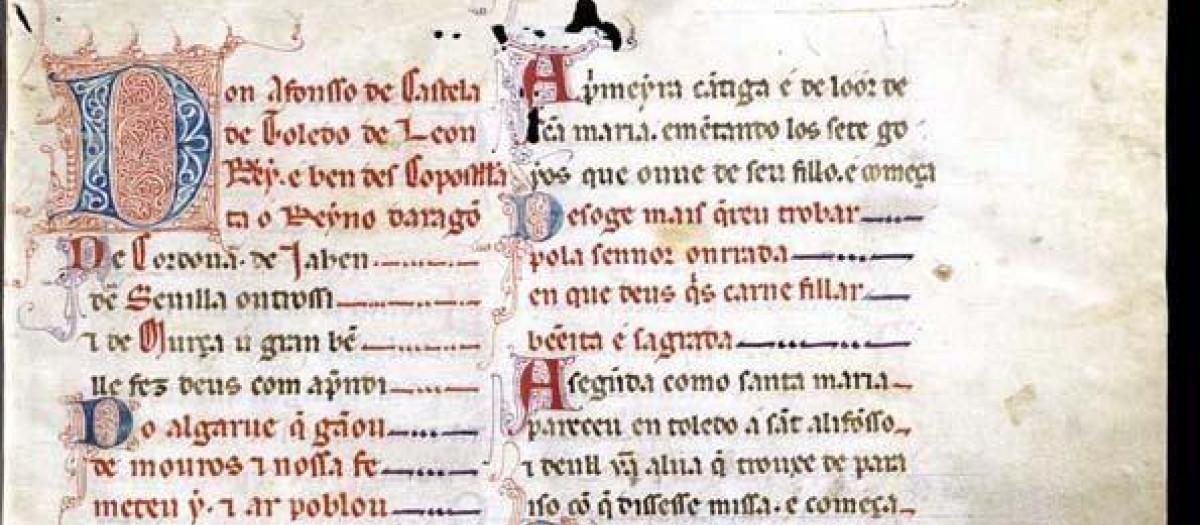 Don Afonsso de Castela
de Toledo de Leon
Rey. e ben des Coposte͂la
ta o Reyno daragõ
De Cordoua. de Jahen
de Seuilla outrossi
⁊ de Murça u gran bẽ
lle fez deus com ap̃ndi
Do algarue q̃ gãou
de mouros ⁊ nossa fe
meteu ẏ. ⁊ ar poblou
A p̃meyra cãtiga é de loor de
sc̃a maria. emẽtando los sete go
yos que ouue de seu fillo. e começa
Desoge mais q̃reu trobar
pola sennor onrrada
en que deus q̃s carne fillar
bẽeita é sagrada
A segũda como santa maria
pareceu en toledo a sãt alifonsso
⁊ deull ũa alua q̃ trouxe de para
iso cõ q̃ dissesse missa. e começa